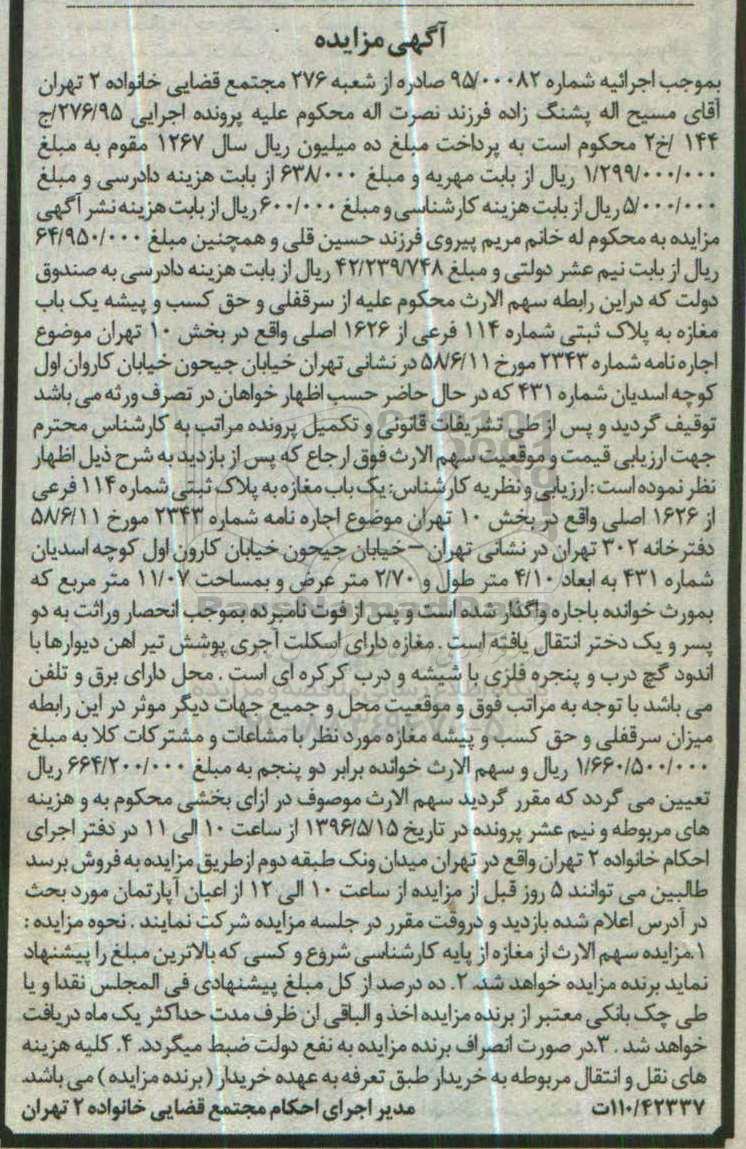 آگهی مزایده
بموجب اجرائیه شماره ۹۵/۰۰۰۸۲ صادره از شعبه ۲۷۶ مجتمع قضایی خانواده ۲ تهران
آقای مسیح اله پشنگ زاده فرزند نصرت اله محکوم علیه پرونده اجرایی ۲۷۶/۹۵/ج
۱۴۴ /خ۲ محکوم است به پرداخت مبلغ ده میلیون ریال سال ۱۲۶۷ مقوم به مبلغ
۱/۲۹۹/۰۰۰/۰۰۰ ریال از بابت مهریه و مبلغ ۶۳۸/۰۰۰ از بابت هزینه دادرسی و مبلغ
۵/۰۰۰/۰۰۰ ریال از بابت هزینه کارشناسی و مبلغ ۶۰۰/۰۰۰ ریال از بابت هزینه نشر آگهی
مزایده به محکوم له خانم مریم پیروی فرزند حسین قلی و همچنین مبلغ ۶۴/۹۵۰/۰۰۰
ریال از بابت نیم عشر دولتی و مبلغ ۴۲/۲۳۹/۷۴۸ ریال از بابت هزینه دادرسی به صندوق
دولت که دراین رابطه سهم الارث محکوم علیه از سرقفلی و حق کسب و پیشه یک باب
مغازه به پلاک ثبتی شماره ۱۱۴ فرعی از ۱۶۲۶ اصلی واقع در بخش ۱۰ تهران موضوع
اجاره نامه شماره ۲۳۴۳ مورخ ۵۸/۶/۱۱ در نشانی تهران خیابان جیحون خیابان کاروان اول
کوچه اسدیان شماره ۴۳۱ که در حال حاضر حسب اظهار خواهان در تصرف ورثه می باشد
توقیف گردید و پس از طی تشریفات قانونی و تکمیل پرونده مراتب به کارشناس محترم
جهت ارزیابی قیمت و موقعیت سهم الارث فوق ارجاع که پس از بازدید به شرح ذیل اظهار
نظر نموده است: ارزیابی و نظریه کارشناس: یک باب مغازه به پلاک ثبتی شماره ۱۱۴ فرعی
از ۱۶۲۶ اصلی واقع در بخش ۱۰ تهران موضوع اجاره نامه شماره ۲۳۴۳ مورخ ۵۸/۶/۱۱
دفترخانه ۳۰۲ تهران در نشانی تهران – خیابان جیحون خیابان کارون اول کوچه اسدیان
شماره ۴۳۱ به ابعاد ۴/۱۰ متر طول و ۲/۷۰ متر عرض و بمساحت ۱۱/۰۷ متر مربع که
بمورث خوانده باجاره واگذار شده است و پس از فوت نامبرده بموجب انحصار وراثت به دو
پسر و یک دختر انتقال یافته است . مغازه دارای اسکلت آجری پوشش تیر اهن دیوارها با
اندود گچ درب و پنجره فلزی با شیشه و درب کرکره ای است . محل دارای برق و تلفن
می باشد با توجه به مراتب فوق و موقعیت محل و جمیع جهات دیگر موثر در این رابطه
میزان سرقفلی و حق کسب و پیشه مغازه مورد نظر با مشاعات و مشترکات کلا به مبلغ
۱/۶۶۰/۵۰۰/۰۰۰ ریال و سهم الارث خوانده برابر دو پنجم به مبلغ ۶۶۴/۲۰۰/۰۰۰ ریال
تعیین می گردد که مقرر گردید سهم الارث موصوف در ازای بخشی محکوم به و هزینه
های مربوطه و نیم عشر پرونده در تاریخ ۱۳۹۶/۵/۱۵ از ساعت ۱۰ الی ۱۱ در دفتر اجرای
احکام خانواده ۲ تهران واقع در تهران میدان ونک طبقه دوم ازطریق مزایده به فروش برسد
طالبین می توانند ۵ روز قبل از مزایده از ساعت ۱۰ الی ۱۲ از اعیان آپارتمان مورد بحث
در آدرس اعلام شده بازدید و دروقت مقرر در جلسه مزایده شرکت نمایند . نحوه مزایده :
۱.مزایده سهم الارث از مغازه از پایه کارشناسی شروع و کسی که بالاترین مبلغ را پیشنهاد
نماید برنده مزایده خواهد شد. ۲. ده درصد از کل مبلغ پیشنهادی فی المجلس نقدا و یا
طی چک بانکی معتبر از برنده مزایده اخذ و الباقی ان ظرف مدت حداکثر یک ماه دریافت
خواهد شد . ۳.در صورت انصراف برنده مزایده به نفع دولت ضبط میگردد. ۴. کلیه هزینه
های نقل و انتقال مربوطه به خریدار طبق تعرفه به عهده خریدار ( برنده مزایده ) می باشد.
۱۱۰/۴۲۳۳۷ت مدیر اجرای احکام مجتمع قضایی خانواده ۲ تهران